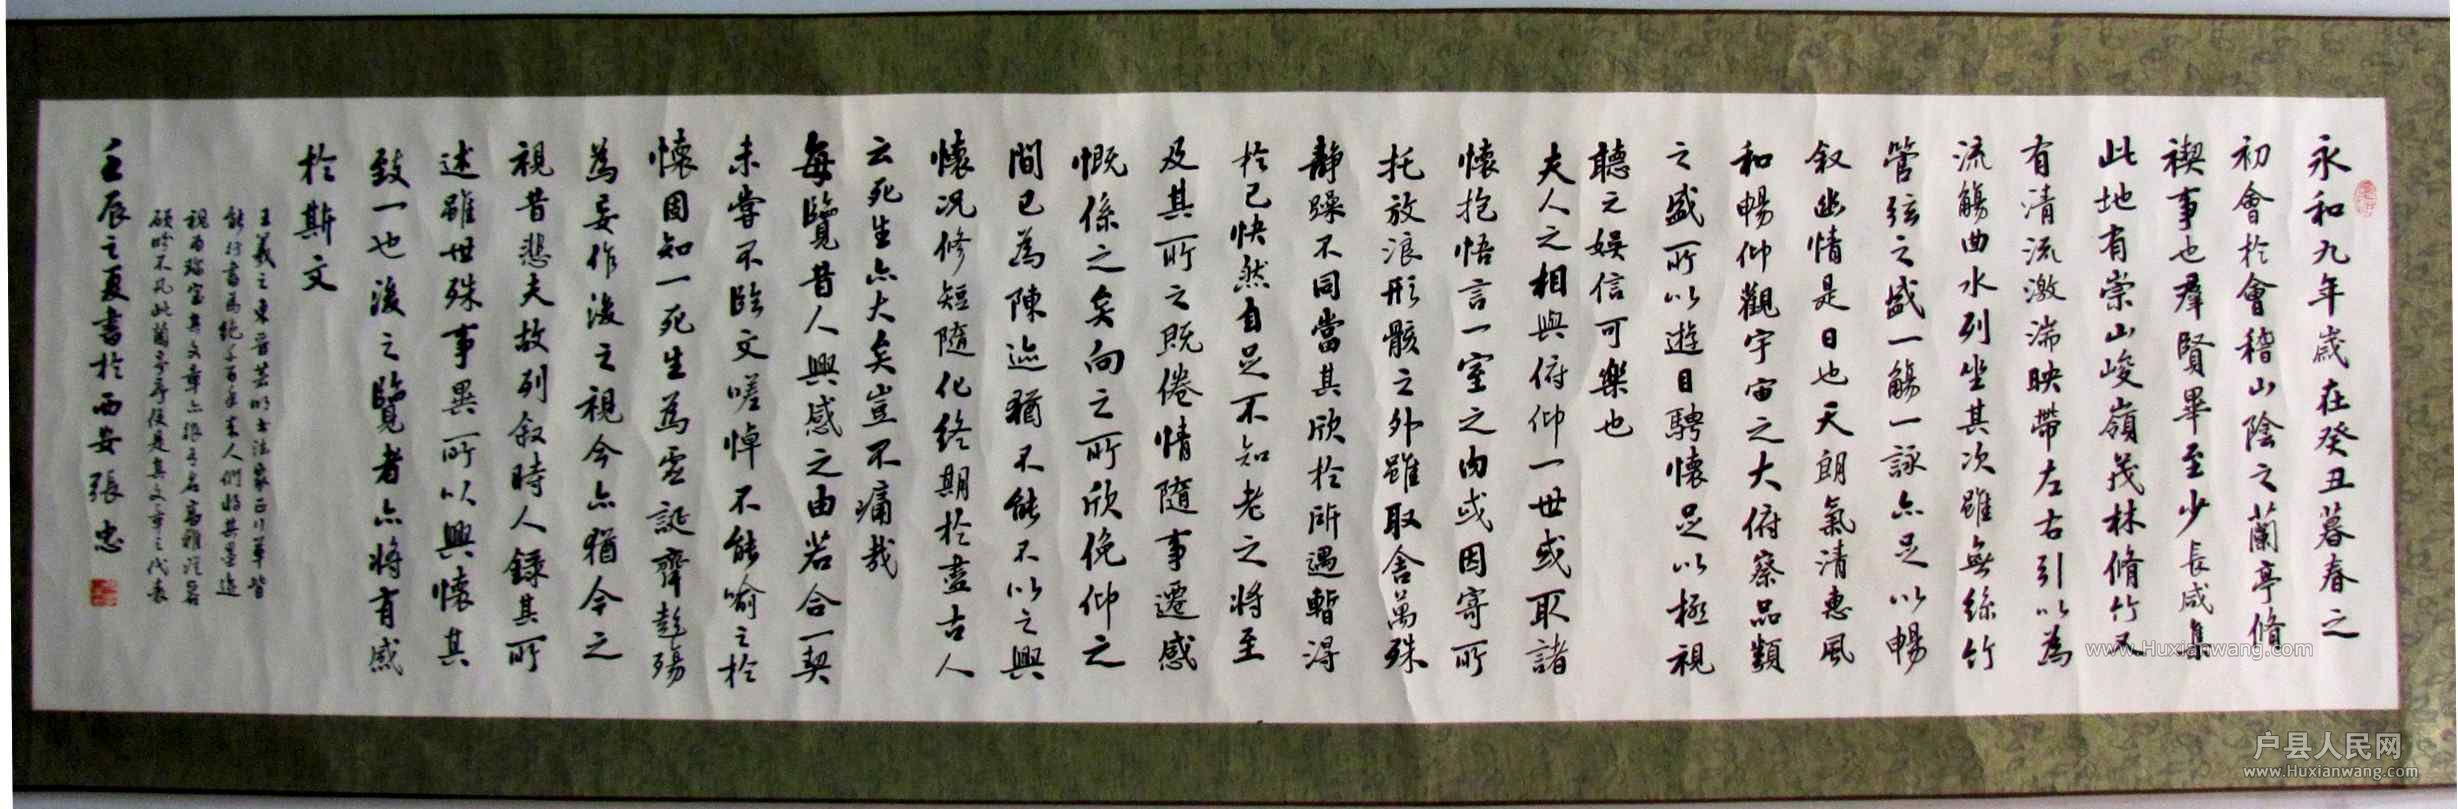 永和九年歲在癸丑暮春之
初會於會稽山陰之蘭亭脩
禊事也羣賢畢至少長咸集
此地有崇山峻嶺茂林脩竹又
有清流激湍映帶左右引以為
流觴曲水列坐其次雖無絲竹
管弦之盛一觴一詠亦足以暢
叙幽情是日也天朗氣清惠風
和暢仰觀宇宙之大俯察品類
之盛所以遊目騁懷足以極視
聽之娛信可樂也
夫人之相與俯仰一世或取諸
懷抱悟言一室之內或因寄所
托放浪形骸之外雖取舍萬殊
靜躁不同當其欣於所遇暫得
於已快然自足不知老之將至
及其所之既倦情隨事遷感
慨係之矣向之所欣俛仰之
間已為陳迹猶不能不以之興
懷況修短隨化終期於盡古人
云死生亦大矣豈不痛哉
每覽昔人興感之由若合一契
未嘗不臨文嗟悼不能喻之於
懷固知一死生為虛誕齊彭殤
為妄作後之視今亦猶今之
視昔悲夫故列叙時人錄其所
述雖世殊事異所以興懷其
致一也後之覽者亦將有感
於斯文
王羲之東晉著明書法家正行草皆
能行書為絕千百年來人們將其墨迹
視為珍寶其文章亦
不凡此蘭亭序便是其文章之代表
壬辰之夏書於西安張忠
www.Huxianwang.com
户县人民网
www.Huxianwang.com